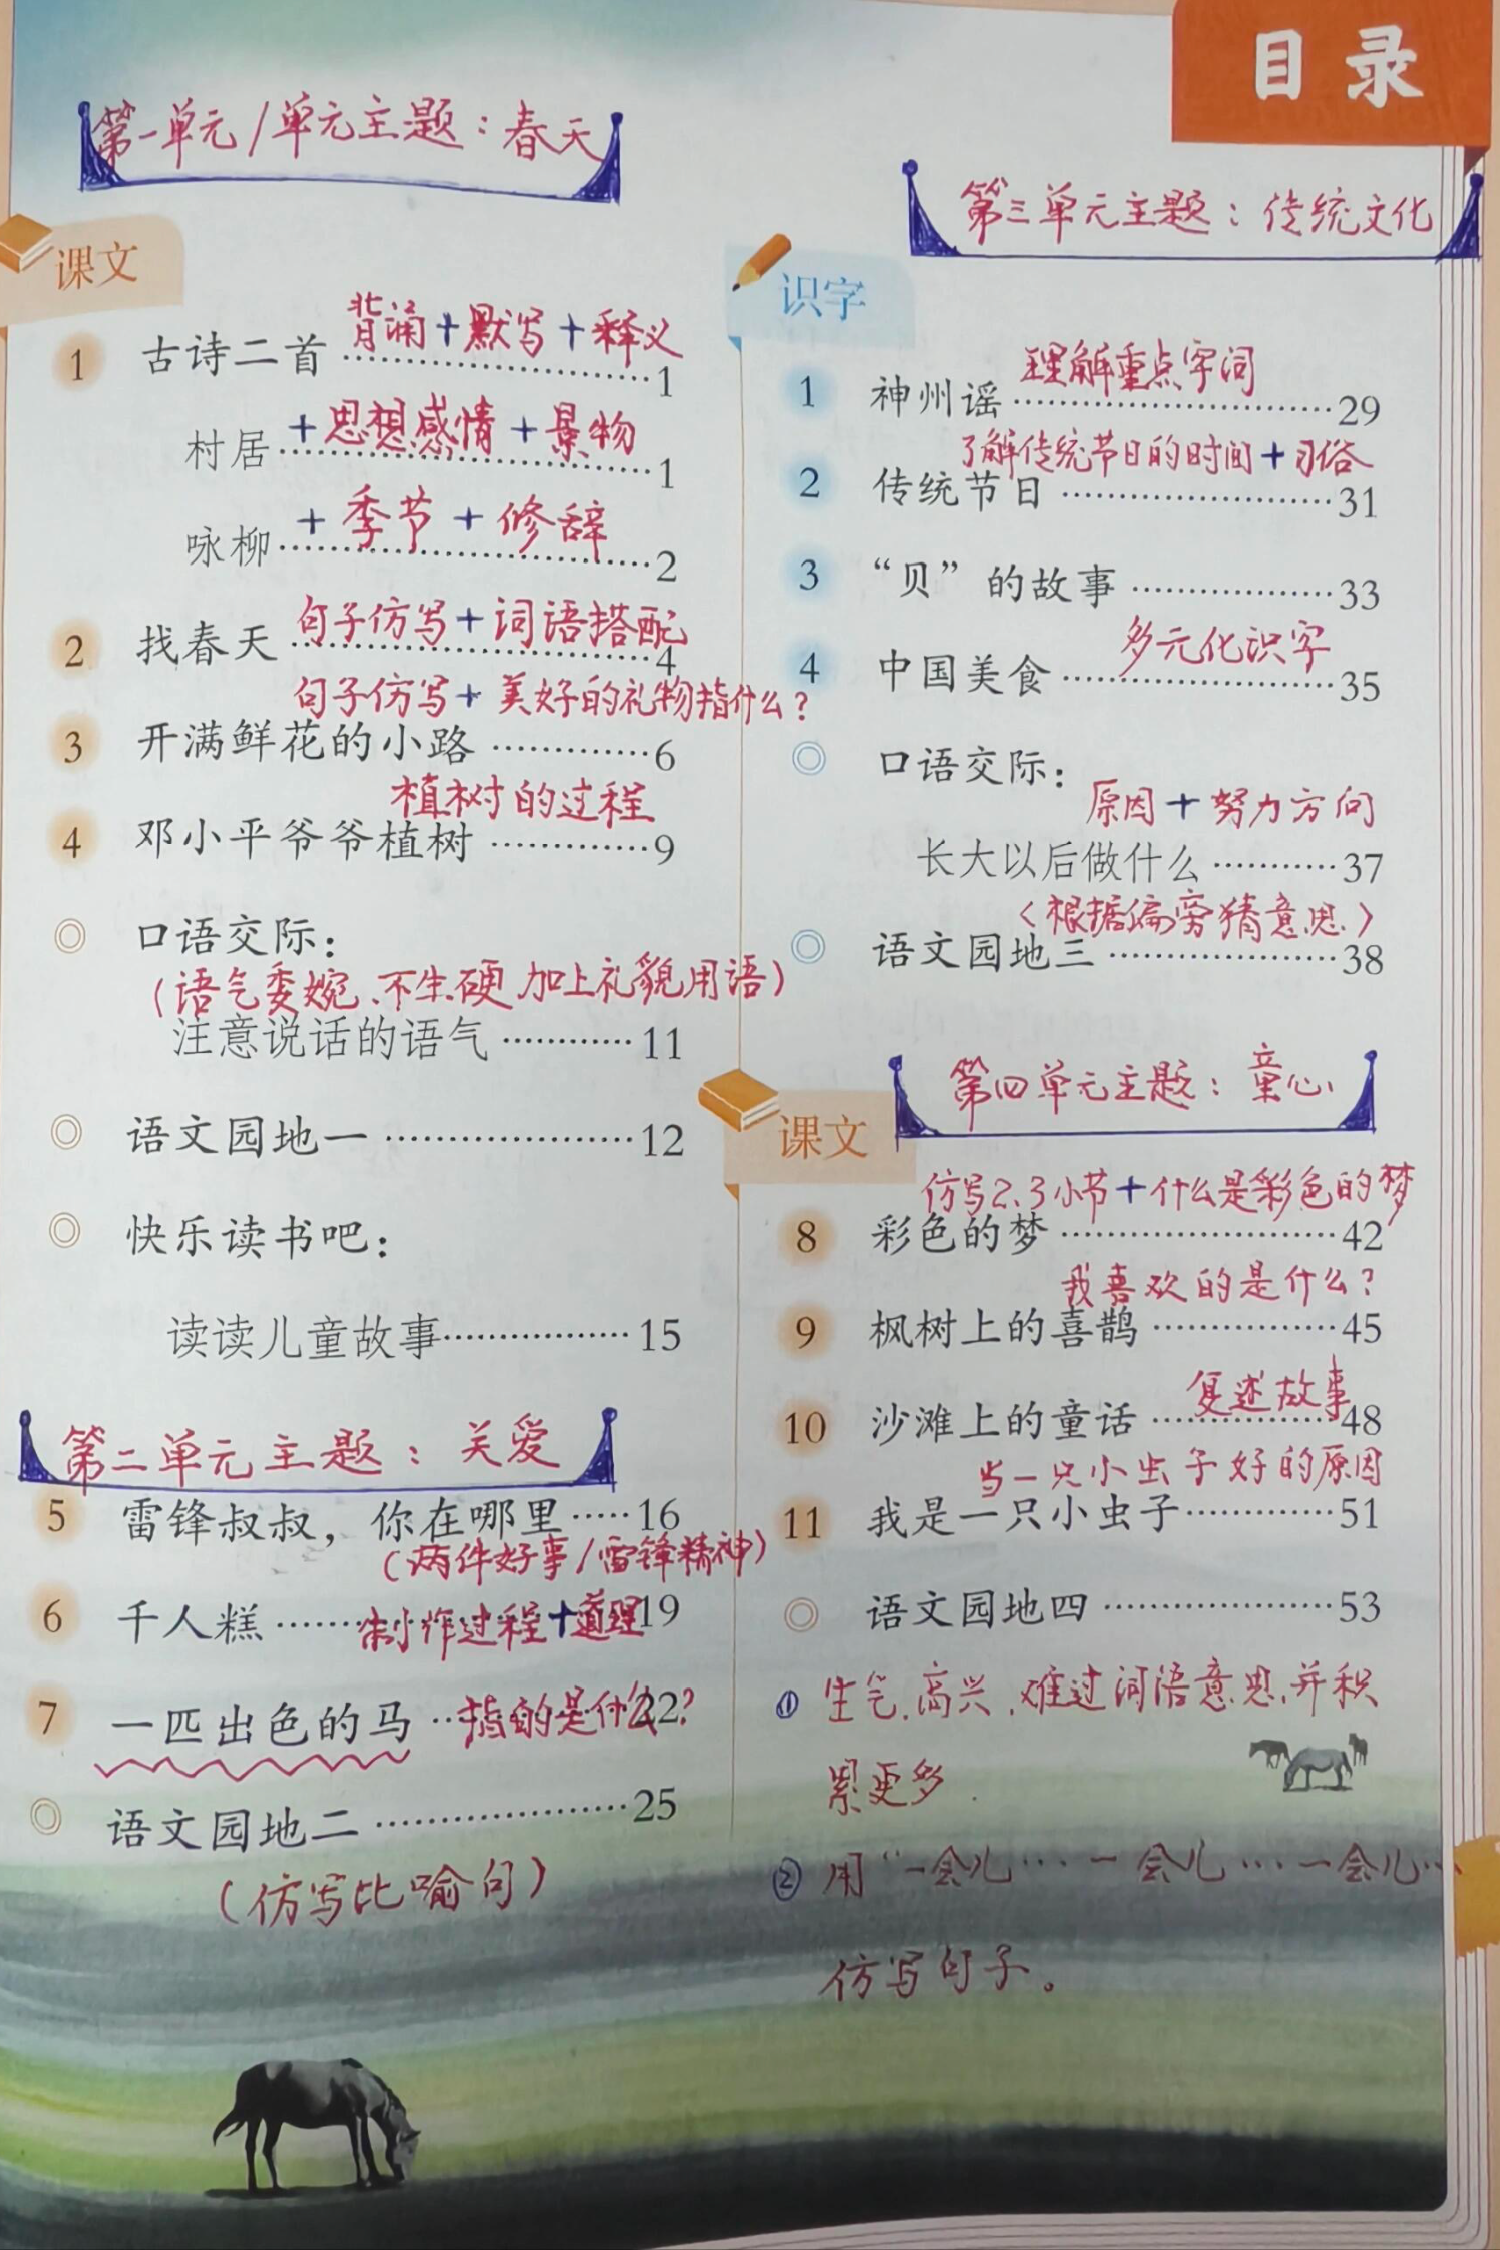 目录
第一单元/单元主题:春天
课文
背诵+默写+释义
1 古诗二首……1
+思想感情+景物
村居……1
+季节+修辞
咏柳……2
句子仿写+词语搭配
2 找春天……4
句子仿写+美好的礼物指什么?
3 开满鲜花的小路……6
植树的过程
4 邓小平爷爷植树……9
◎ 口语交际:
(语气委婉、不生硬、加上礼貌用语)
注意说话的语气……11
◎ 语文园地一……12
◎ 快乐读书吧:
读读儿童故事……15
第二单元主题:关爱
5 雷锋叔叔,你在哪里……16
(两件好事/雷锋精神)
6 千人糕……19
制作过程+道理
7 一匹出色的马……22
指的是什么?
◎ 语文园地二……25
(仿写比喻句)
第三单元主题:传统文化
识字
理解重点字词
1 神州谣……29
了解传统节日的时间+习俗
2 传统节日……31
3 “贝”的故事……33
多元化识字
4 中国美食……35
◎ 口语交际:
原因+努力方向
长大以后做什么……37
(根据偏旁猜意思)
◎ 语文园地三……38
第四单元主题:童心
课文
仿写2、3小节+什么是彩色的梦
8 彩色的梦……42
我喜欢的是什么?
9 枫树上的喜鹊……45
复述故事
10 沙滩上的童话……48
当一只小虫子好的原因
11 我是一只小虫子……51
◎ 语文园地四……53
① 生气、高兴、难过词语意思,并积
累更多.
② 用“一会儿…一会儿…一会儿…
仿写句子。